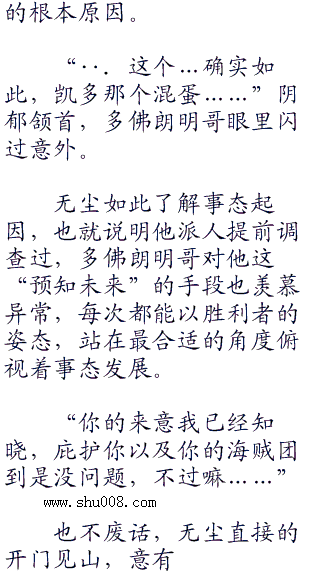 的根本原因。
“··．这个…确实如
此，凯多那个混蛋……”阴
郁颔首，多佛朗明哥眼里闪
过意外。
无尘如此了解事态起
因，也就说明他派人提前调
查过，多佛朗明哥对他这
“预知未来”的手段也羡慕
异常，每次都能以胜利者的
姿态，站在最合适的角度俯
视着事态发展。
“你的来意我已经知
晓，庇护你以及你的海贼团
到是没问题，不过嘛……”
www.shu008.com
也不废话，无尘直接的
开门见山，意有